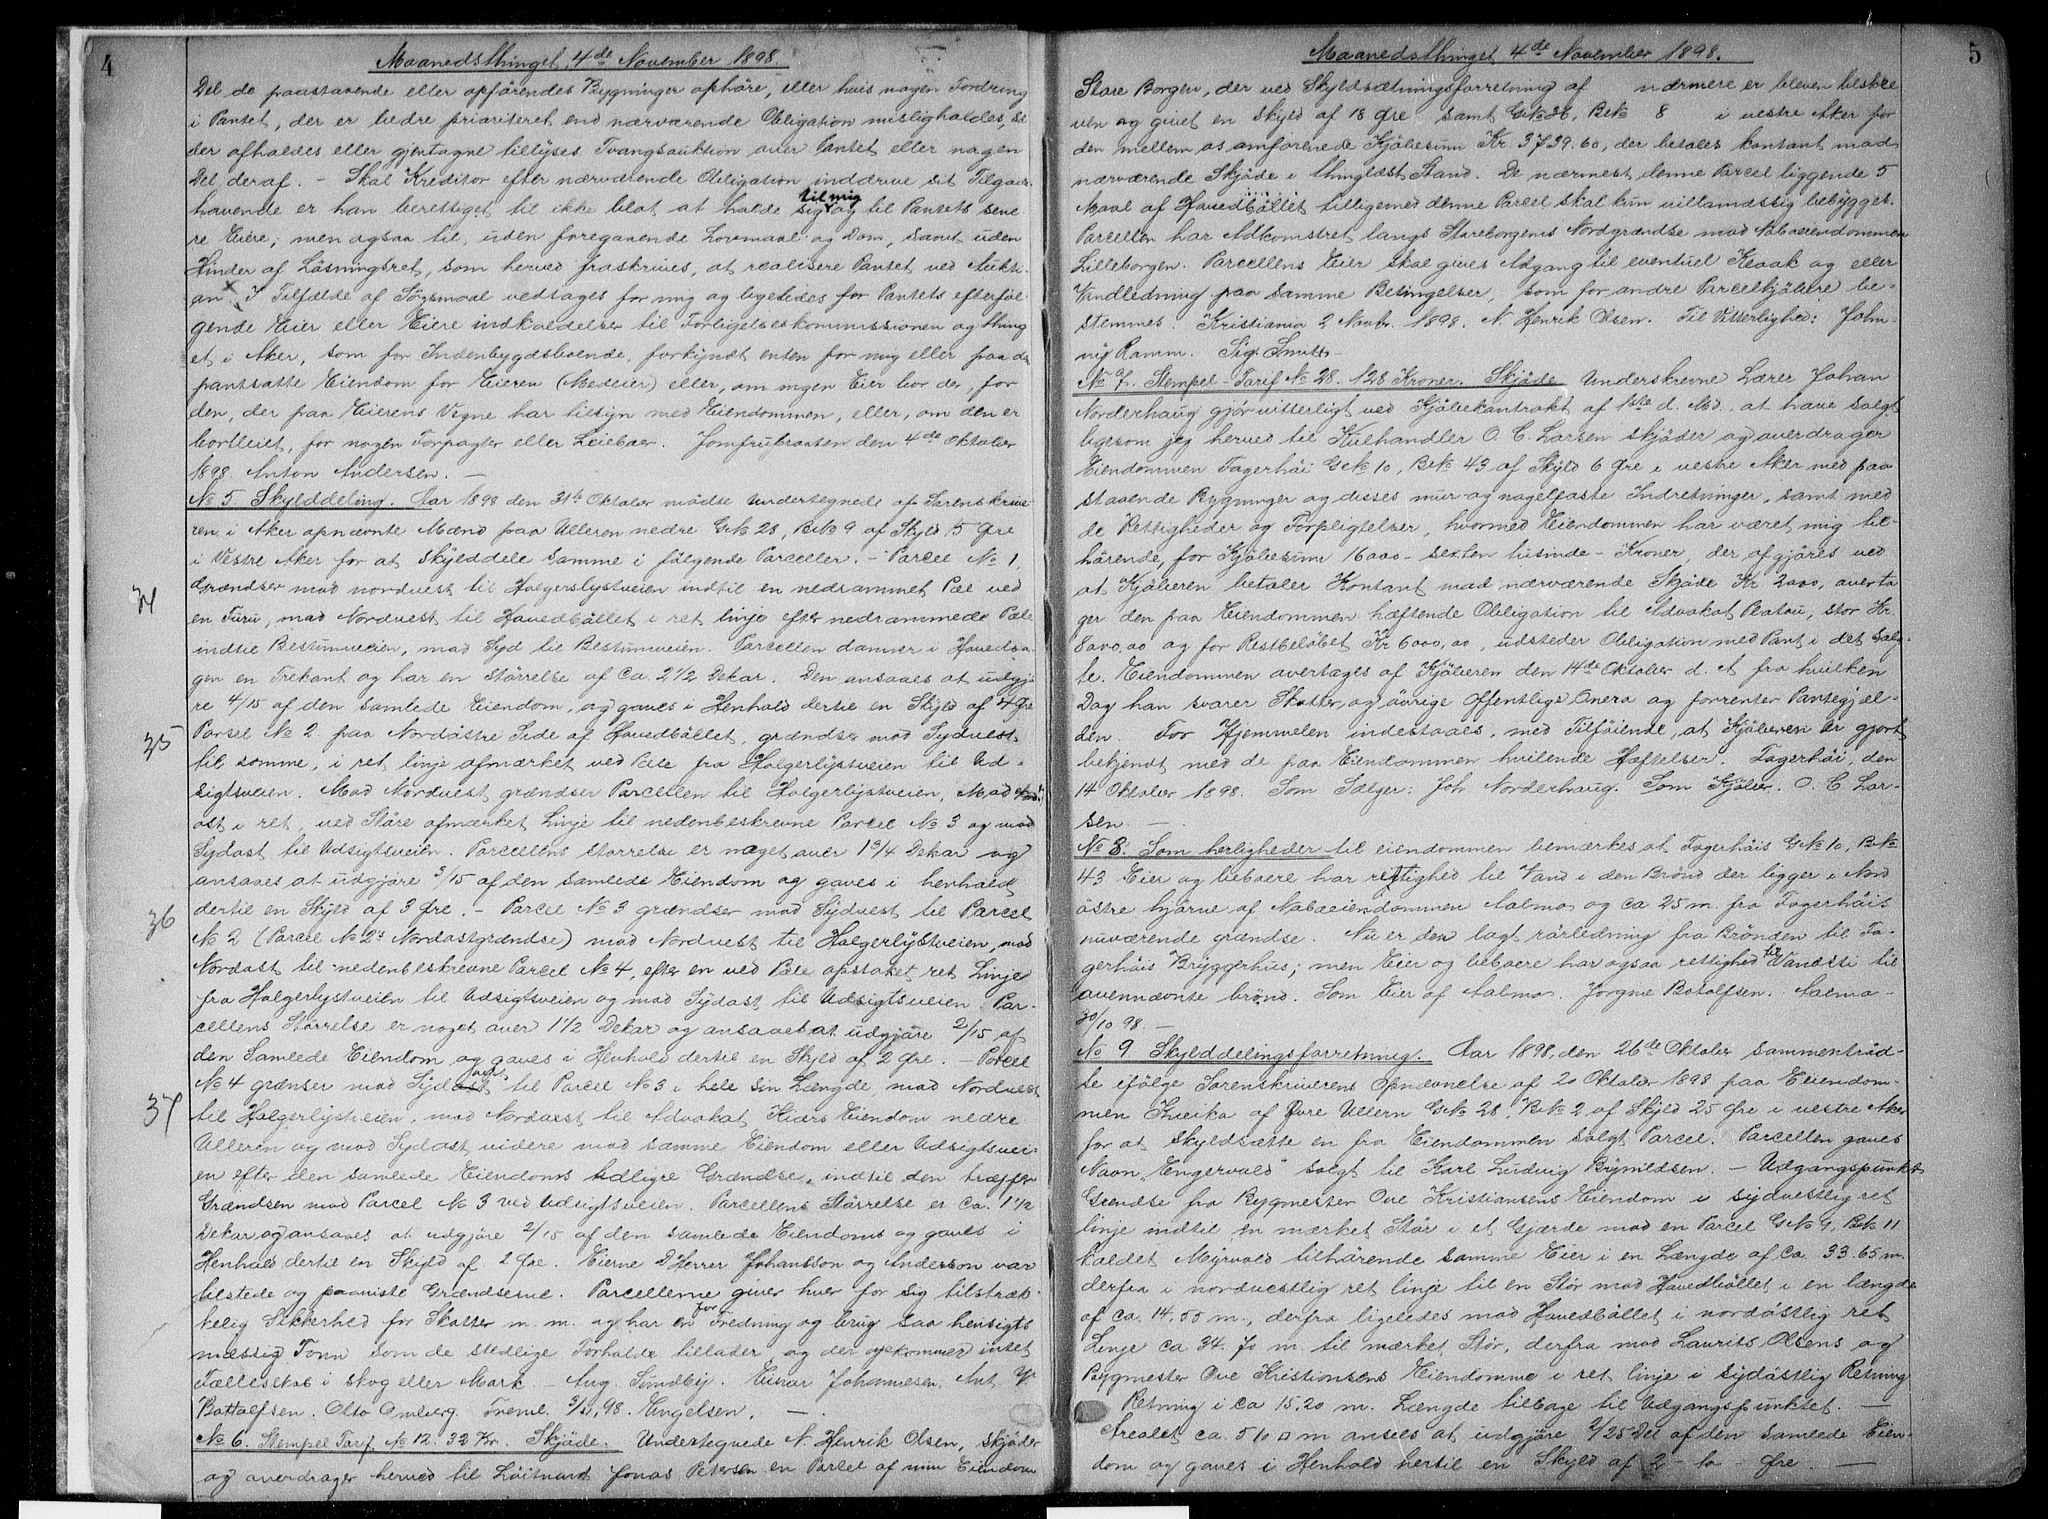 4
Maanedsthinget 4de November 1898.
Del de paastaaende eller opförendes Bygninger ophöre, eller hvis nogen Fordring
i Pantet, der er bedre prioriteret end nærværende Obligation misligholdes,
der afholdes eller gjentagne tillyses Tvangsauktion over Pantet eller nogen
Del deraf. - Skal Kreditor efter nærværende Obligation inddrive sit Tilgode-
havende er han berettiget til ikke blot at holde sig til mig og til Pantets sene-
re Eiere, men ogsaa til, uden foregaaende Lovmaal og Dom, samt uden
Hinder af Løsningsret, som herved fraskrives, at realisere Pantet ved Aukti-
on. I Tilfælde af Søgsmaal vedtages for mig og ligeledes for Pantets efterføl-
gende Eier eller Eiere indkaldelser til Forligelseskommissionen og thing
et i Aker, som for Indenbygdsboende, forkyndt enten for mig eller paa den
pantsatte Eiendom for Eieren (Medeier) eller, om ingen Eier bor der, for
den, der paa Eierens Vegne har tilsyn med Eiendommen, eller, om den er
bortleiet, for nogen Forpagter eller Leieboer. Jomfrubraaten den 4de Oktober
1898 Anton Andersen. -
No 5 Skylddeling. Aar 1898 den 31te Oktober mödte undertegnede af Sorenskrive-
ren i Aker opnævnte Mænd paa Ulleren nedre GNo 28, BNo 9 af Skyld 15 Øre
i Vestre Aker for at skylddele samme i følgende Parceller. - Parcel No 1,
34
Grændser mod nordvest til Holgerslystveien indtil en nedrammet Pæl ved
en Furu, mod Nordvest til Hovedbøllet i ret linje efter nedrammede Pæle
indtil Bestumveien, mod Syd til Bestumveien. Parcellen danner i Hovedsa-
gen en Trekant og har en Störrelse af Ca. 2 1/2 Dekar. Den ansaaes at udgjö-
re 4/15 af den samlede Eiendom, og gaves i Henhold dertil en Skyld af 4 Øre
35
Parsel No 2 paa Nordöstre Side af Hovedbøllet, grændser mod Sydvest
til samme, i ret linje afmærket ved Pæle fra Holgerlystveien til Ud-
sigtsveien. Mod Nordvest grændser Parcellen til Holgerlystveien, Mod Nord-
ost i ret, ved Støre afmærket Linje til nedenbeskrevne Parcel No 3 og mod
Sydost til Udsigtsveien. Parcellens störrelse er noget over 1 3/4 Dekar og
ansaaes at udgjøre 3/15 af den samlede Eiendom og gaves i henhold
36
dertil en Skyld af 3 Øre. - Parcel No 3 grændser mod Sydvest til Parcel
No 2 (Parcel No 2's Nordostgrændse) mod Nordvest til Holgerlystveien, mod
Nordost til nedenbeskrevne Parcel No 4, efter en ved Pæle opstaket ret Linje
fra Holgerlystveien til Udsigtsveien og mod Sydost til Udsigtsveien. Par-
cellens Störrelse er noget over 1 1/2 Dekar og ansaaes at udgjöre 2/15 af
den Samlede Eiendom og gaves i Henhold dertil en Skyld af 2 Øre. - Parcel
37
No 4 grænser mod Sydost til Parcel No 3 i hele sin Længde, mod Nordvest
til Holgerlystveien, mod Nordaast til Advokat Kiærs Eiendom nedre
Ulleren og mod Sydost videre mod samme Eiendom eller Udsigtsvei-
en efter den samlede Eiendoms tidligre Grændse, indtil den træffer
Grændsen mod Parcel No 3 ved Udsigtsveien. Parcellens Störrelse er Ca. 1 1/2
Dekar og ansaaes at udgjöre 2/15 af den samlede Eiendoms og gaves i
Henhold dertil en Skyld af 2 Øre. Eierne D'Herrer Johansson og Anderson var
tilstede og paaviste Grændserne. Parcellerne giver hver for sig tilstræk-
kelig Sikkerhed for Skatter m. m. og har en for Fredning og brug saa hensigts
mæssig Form som de stedlige Forholde tillader og der opkommer intet
Fællesskab i skog eller Mark. - Aug. Sundby. Einar Johannesen. Ant. Y.
Bottolfsen. Otto Omberg. Freml. 3/11 98. Engelsen. -
No 6. Stempel Tarif No 12. 32 Kr. Skjöde. Undertegnede N. Henrik Olsen, skjöder
og overdrager herved til Löitnant Jonas Petersen en Parcel af min Eiendom
5
Maanedsthinget 4de November 1898.
Store Borgen, der ved Skyldsætningsforretning af nærmere er bleven beskre
ven og givet en skyld af 18 Øre samt GNo 36, BNo 8 i vestre Aker for
den mellem os omforenede Kjöbesum Kr. 3739.60, der betales kontant mod
nærværende Skjöde i thinglæst Stand. De nærmest denne Parcel liggende 5
Maal af Hovedbøllet tilligemed denne Parcel skal kun villamæssig bebygges.
Parcellen har Adkomstret langs Storeborgens Nordgrændse mod Naboeiendommen
Lilleborgen. Parcellens Eier skal gives Adgang til eventuel Kloak og eller
Vandledning paa samme Betingelser, som for andre Parcelkjöbere be-
stemmes. Kristiania 2 Novbr. 1898. N. Henrik Olsen. Til Vitterlighed: Joh-
nij Ramm. Sig. Smith-
No 7. Stempel-Tarif No 28. 128 Kroner. Skjöde Underskrevne Lærer Johan
Norderhaug gjör vitterligt ved Kjöbekontrakt af 1ste d. Md. at have solgt
ligesom jeg herved til Kulhandler O. C. Larsen skjöder og overdrager
Eiendommen Fagerhöi GNo 10, BNo 43 af Skyld 6 Øre i vestre Aker med paa
staaende Bygninger og disses mur- og nagelfaste Indretninger, samt med
de Rettigheder og Forpligtelser, hvormed Eiendommen har været mig til-
hörende, for Kjöbesum 16000 - sexten tusinde - Kroner, der afgjöres ved
at Kjöberen betaler Kontant mod nærværende Skjöde Kr. 2000, overta
ger den paa Eiendommen hæftende Obligation til Advokat Platou, stor Kr.
8000,00 og for Restbelöbet Kr 6000,00, udsteder Obligation med Pant i det Solg-
te. Eiendommen overtages af Kjöberen den 14de Oktober d. A. fra hvilken
Dag han svarer Skatter og övrige offentlige Onera og forrenter Pantegjæl-
den. For Hjemmelen indestaaes, med Tilföiende, at Kjöberen er gjort
bekjendt med de paa Eiendommen hvilende Hæftelser. Fagerhöi, den
14 Oktober 1898. Som Sælger: Joh Norderhaug. Som Kjöber. O. C Lar-
sen. -
No 8. Som herligheder til eiendommen bemærkes at Fagerhöis GNo 10, BNo
43 Eier og beboere har rettighed til Vand i den Brönd der ligger i Nord
östre hjörne af Naboeiendommen Aalmo og ca 25 m. fra Fagerhöis
nuværende grændse. Nu er den lagt rörledning fra Brönden til Fa-
gerhöis Bryggerhus; men Eier og beboere har ogsaa rettighed til Vandsti til
ovennævnte brönd. Som Eier af Aalmo. Jörgine Botolfsen. Aalmo
20/10 98. -
No 9 Skylddelingsforretning. Aar 1898, den 26de Oktober sammentraad-
te ifölge Sorenskriverens Opnævnelse af 20 Oktober 1898 paa Eiendom-
men Kneika af Övre Ullern GNo 28, BNo 2 af Skyld 25 Øre i vestre Aker
for at skyldsætte en fra Eiendommen solgt Parcel. Parcellen gaves
Navn "Engervold" solgt til Karl Ludvig Brynildsen. - Udgangspunkt
Grændse fra Bygmester Ove Kristiansens Eiendom i sydvestlig ret
linje indtil en mærket Stör i et Gjærde mod en Parcel GNo 9, BNo 11
kaldet Myrvold tilhörende samme Eier i en Længde af Ca 33.65 m.
derfra i nordvestlig ret linje til en Stör mod Hovedbøllet i en længde
af Ca. 14.55 m., derfra ligeledes mod Hovedbøllet i nordöstlig ret
Linje ca 34.70 m. til mærket Stör, derfra mod Laurits Olsens og
Bygmester Ove Kristiansens Eiendomme i ret linje i sydöstlig Retning
Retning i Ca 15.20 m. Længde tilbage til Udgangspunktet. -
Arealet ca. 510 □ m ansees at udgjöre 2/25 Del af den Samlede Eien-
dom og gaves i Henhold hertil en Skyld af 2 - to - Øre. -